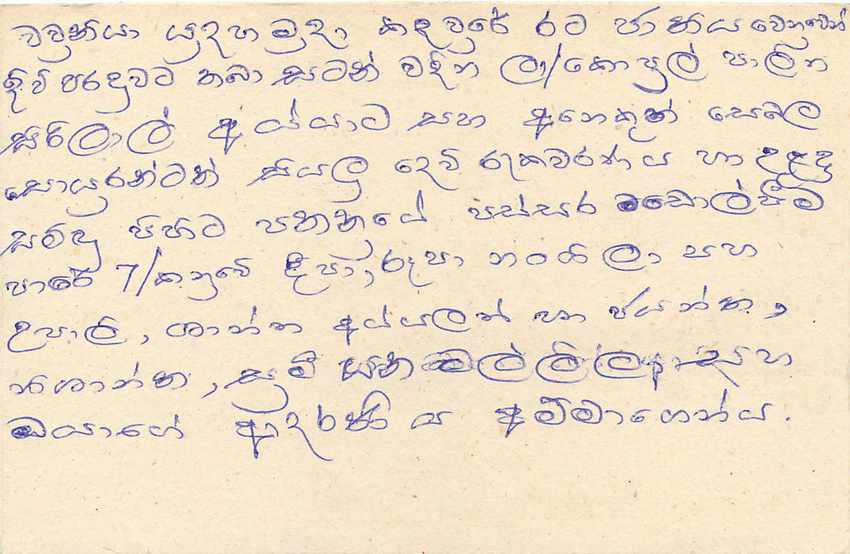 වවුනියා යුදහමුදා කඳවුරේ රට ජාතිය වෙනුවෙන්
දිවි පරදුවට තබා සටන් වදින ලා/කොප්‍රල් පාලිත
සිරිලාල් අය්යාට සහ අනෙකුත් සෙබල
සොයුරන්ටත් සියලු දෙවි රුකවරණය හා උළිඳු
සමිඳු පිහිට පතනුයේ පස්සර මඩොල්සීම
පාරේ 7/කනුවේ දීපා, රූපා නංගි ලා සහ
උපාලි, ශාන්ත අය්යලත් හා ජයන්ත,
නිශාන්ත, සුමි සහ මල්ලිලා සහ
ඔයාගේ ආදරණීය අම්මාගෙන්ය.